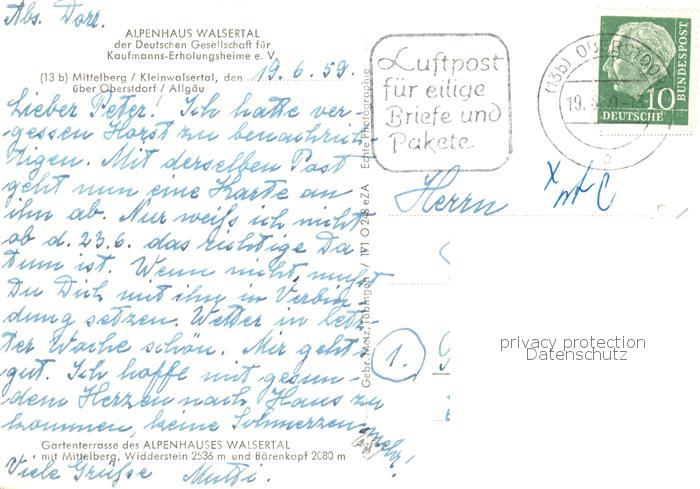 Abs. Dorr.
ALPENHAUS WALSERTAL
der Deutschen Gesellschaft für
Kaufmanns-Erholungsheime e. V.
(13 b) Mittelberg / Kleinwalsertal, den 19. 6. 59.
über Oberstdorf / Allgäu
Lieber Peter! Ich hatte ver-
gessen Horst zu benachrich-
tigen. Mit derselben Post
geht nun eine Karte an
ihn ab. Nur weiß ich nicht
ob d. 23.6. das richtige Da
tum ist. Wenn nicht, mußt
Du Dich mit ihm in Verbin
dung setzen. Wetter in letz-
ter Woche schön. Mir geht's
gut. Ich hoffe mit gesun-
dem Herzen nach Haus zu
kommen, keine Schmerzen mehr!
Gartenterrasse des ALPENHAUSES WALSERTAL
mit Mittelberg, Widderstein 2536 m und Bärenkopf 2080 m
Viele Grüße Mutti.
Gebr. Metz, Tübingen / 1V1 O 248 eZA Echte Photographie
Luftpost
für eilige
Briefe und
Pakete
(13b) OBERSTDORF
19.
a
10
DEUTSCHE
BUNDESPOST
Herrn
1.
privacy protection
Datenschutz